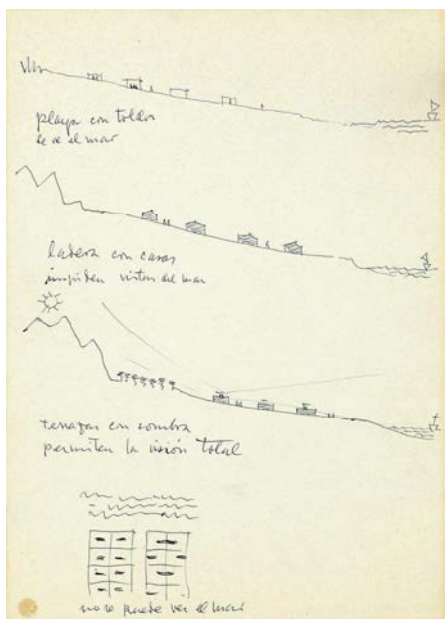 playa con toldos
se ve el mar
ladera con casas
impiden vistas del mar
terrazas con sombra
permiten la visión total
no se puede ver el mar